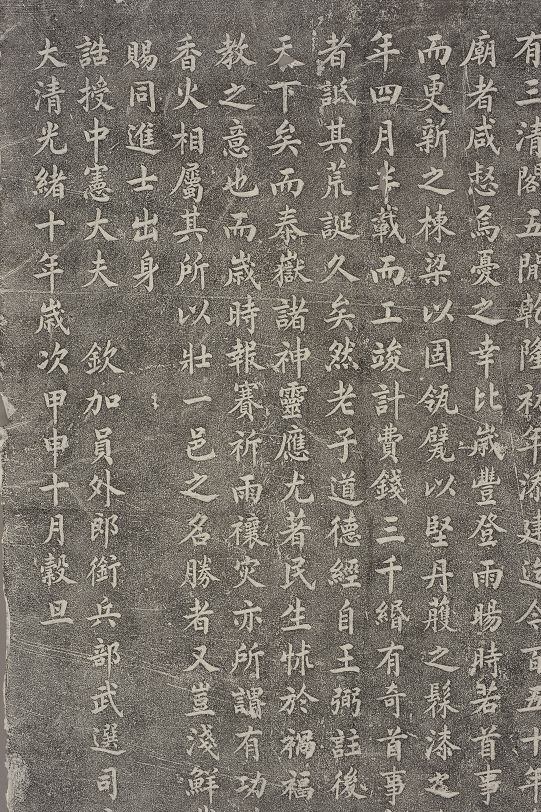 有三清閣五間乾隆初年添建迄今百五十年
廟者咸惄焉憂之幸比歲豐登雨暘時若首事
而更新之棟梁以固瓴甓以堅丹雘之髹漆之
年四月半載而工竣計費錢三千緡有奇首事
者詆其荒誕久矣然老子道德經自王弼註後
天下矣而泰嶽諸神靈應尤著民生怵於禍福
教之意也而歲時報賽祈雨禳災亦所謂有功
香火相屬其所以壯一邑之名勝者又豈淺鮮
賜同進士出身
誥授中憲大夫 欽加員外郎銜兵部武選司
大清光緒十年歲次甲申十月穀旦